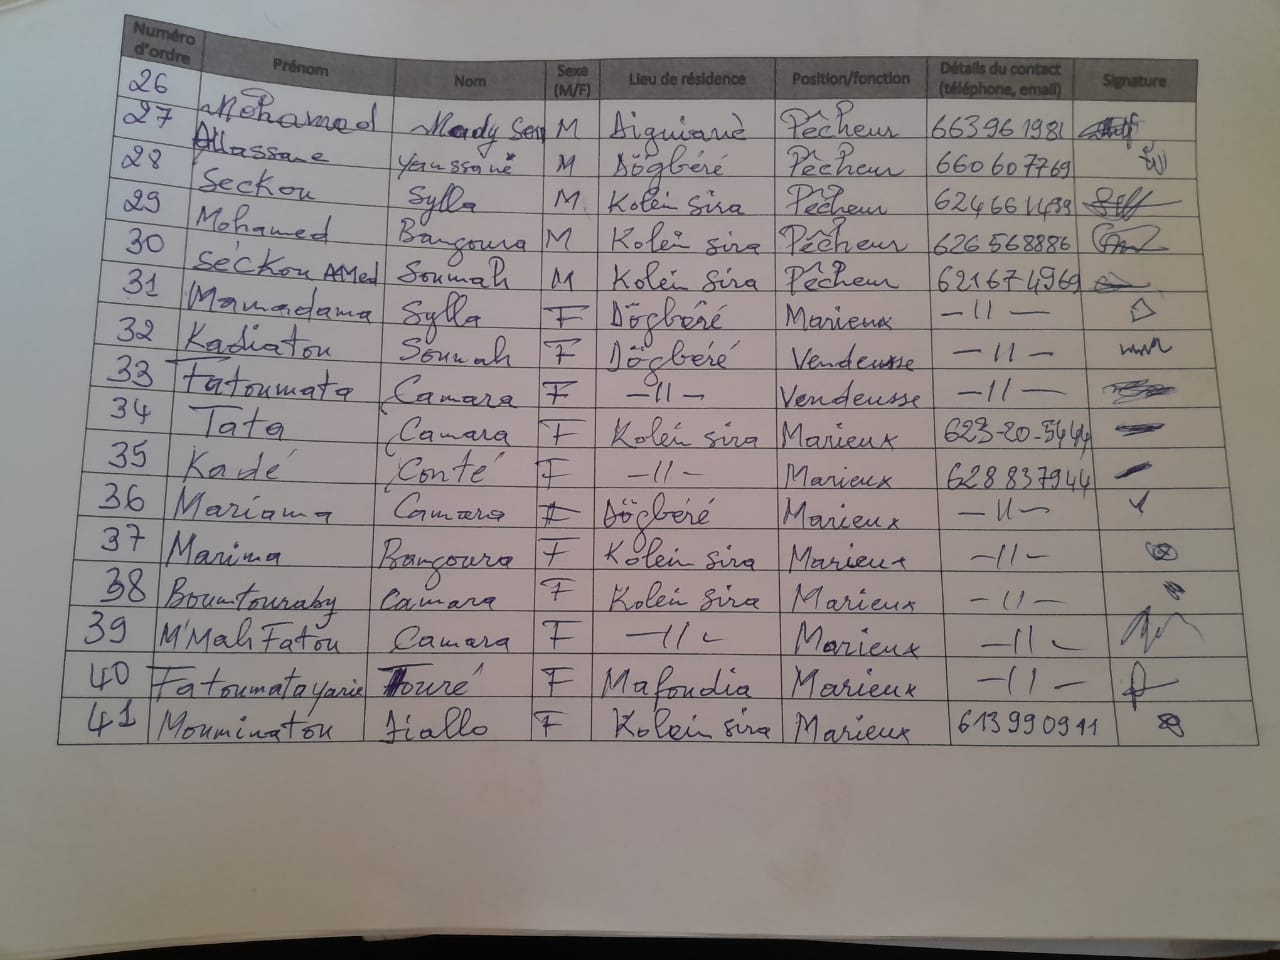 Numéro d'ordre Prénom Nom Sexe (M/F) Lieu de résidence Position/fonction Détails du contact (téléphone, email) Signature
26 Mohamed Mady M Diguianè Pêcheur 663961981
27 Allassane Yanssanè M Dögbéré Pêcheur 660607769
28 Seckou Sylla M Kolèn Sira Pêcheur 624661499
29 Mohamed Bangoura M Kolèn sira Pêcheur 626568886
30 Séckou AMed Soumah M Kolèn sira Pêcheur 621674969
31 Mamadama Sylla F Dögbéré Marieux -11 -
32 Kadiatou Soumah F Dögbéré Vendeusse -11 -
33 Fatoumata Camara F -11 - Vendeusse -11 -
34 Tata Camara F Kolèn sira Marieux 623-20-5444
35 Kadé Conté F -11 - Marieux 628837944
36 Mariama Camara F Dögbéré Marieux -11 -
37 Marima Bangoura F Kolèn sira Marieux -11 -
38 Bountouraby Camara F Kolèn sira Marieux -11 -
39 M'Mah Fatou Camara F -11 - Marieux -11 -
40 Fatoumatayarie Touré F Mafoudia Marieux -11 -
41 Mouminatou Diallo F Kolèn sira Marieux 613990911